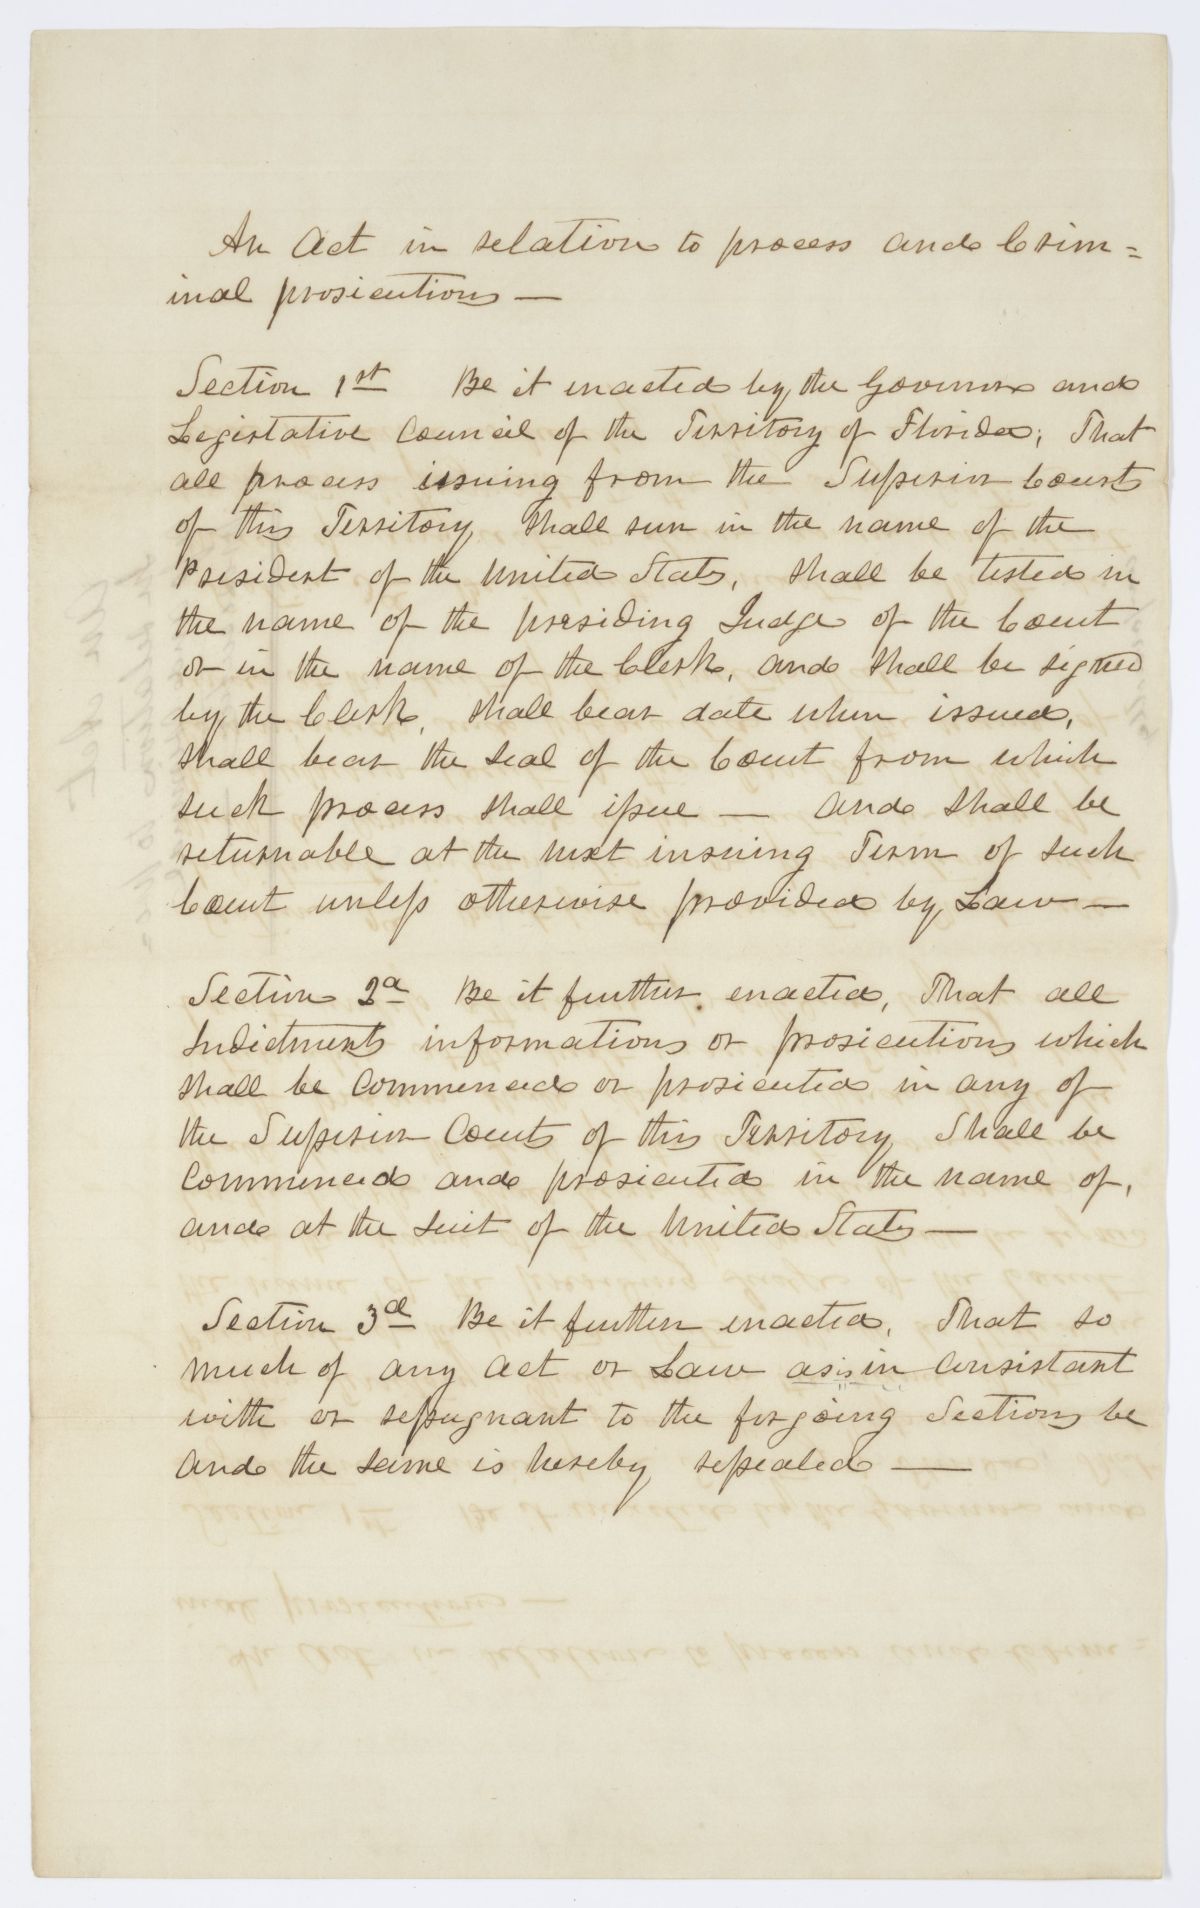 An Act in relation to process and Crim=
inal prosicutions —
Section 1st Be it enacted by the Governor and
Legislative Council of the Territory of Florida; That
all process issuing from the Superior Courts
of this Territory shall run in the name of the
President of the United States, shall be tested in
the name of the presiding Judge of the Court
or in the name of the Clerk, and shall be signed
by the Clerk, shall bear date when issued,
shall bear the seal of the Court from which
such process shall issue — and shall be
returnable at the next insuing Term of such
Court unless otherwise provided by Law —
Section 2d Be it further enacted, That all
Indictments informations or prosicutions which
shall be commenced or prosicuted in any of
the Superior Courts of this Territory Shall be
commenced and prosicuted in the name of,
and at the suit of the United States —
Section 3d Be it further enacted, That so
much of any act or Law as is in consistant
with or repugnant to the forgoing Sections be
and the same is hereby repealed —